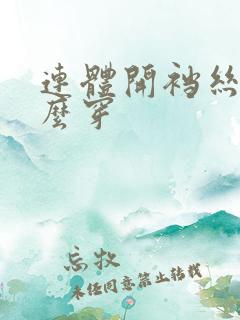 連體開襠絲
麼穿
忘牧
未经同意禁止转载